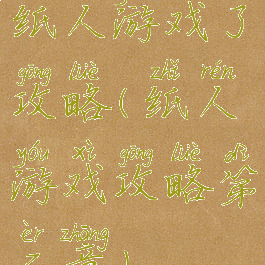 纸人游戏了
gōng lüè zhǐ rén
攻略(纸人
yóu xì gōng lüè dì
游戏攻略第
èr zhāng
二章)